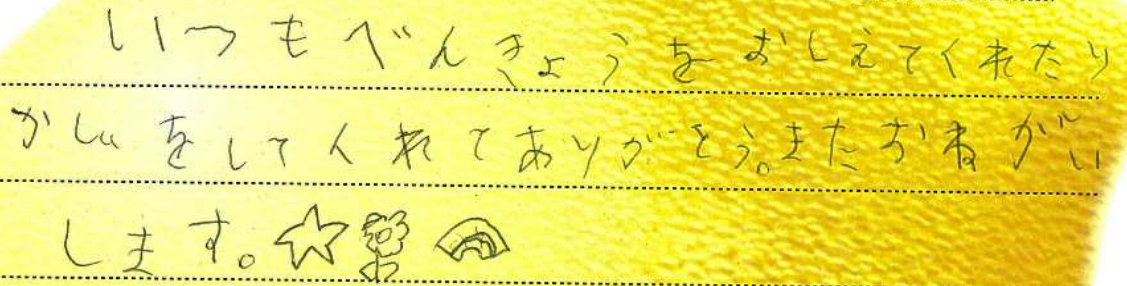 いつもべんきょうをおしえてくれたり
かじをしてくれてありがとう。またおねがい
します。